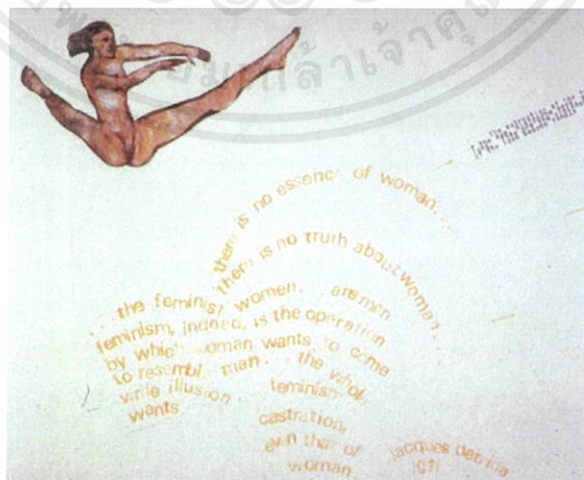 there is no essence of woman...
there is no truth about woman...
...the feminist women... are men
feminism, indeed, is the operation
by which woman wants to come
to resemble man... the whole
virile illusion. feminism
wants castration,
even that of
woman.
jacques derrida